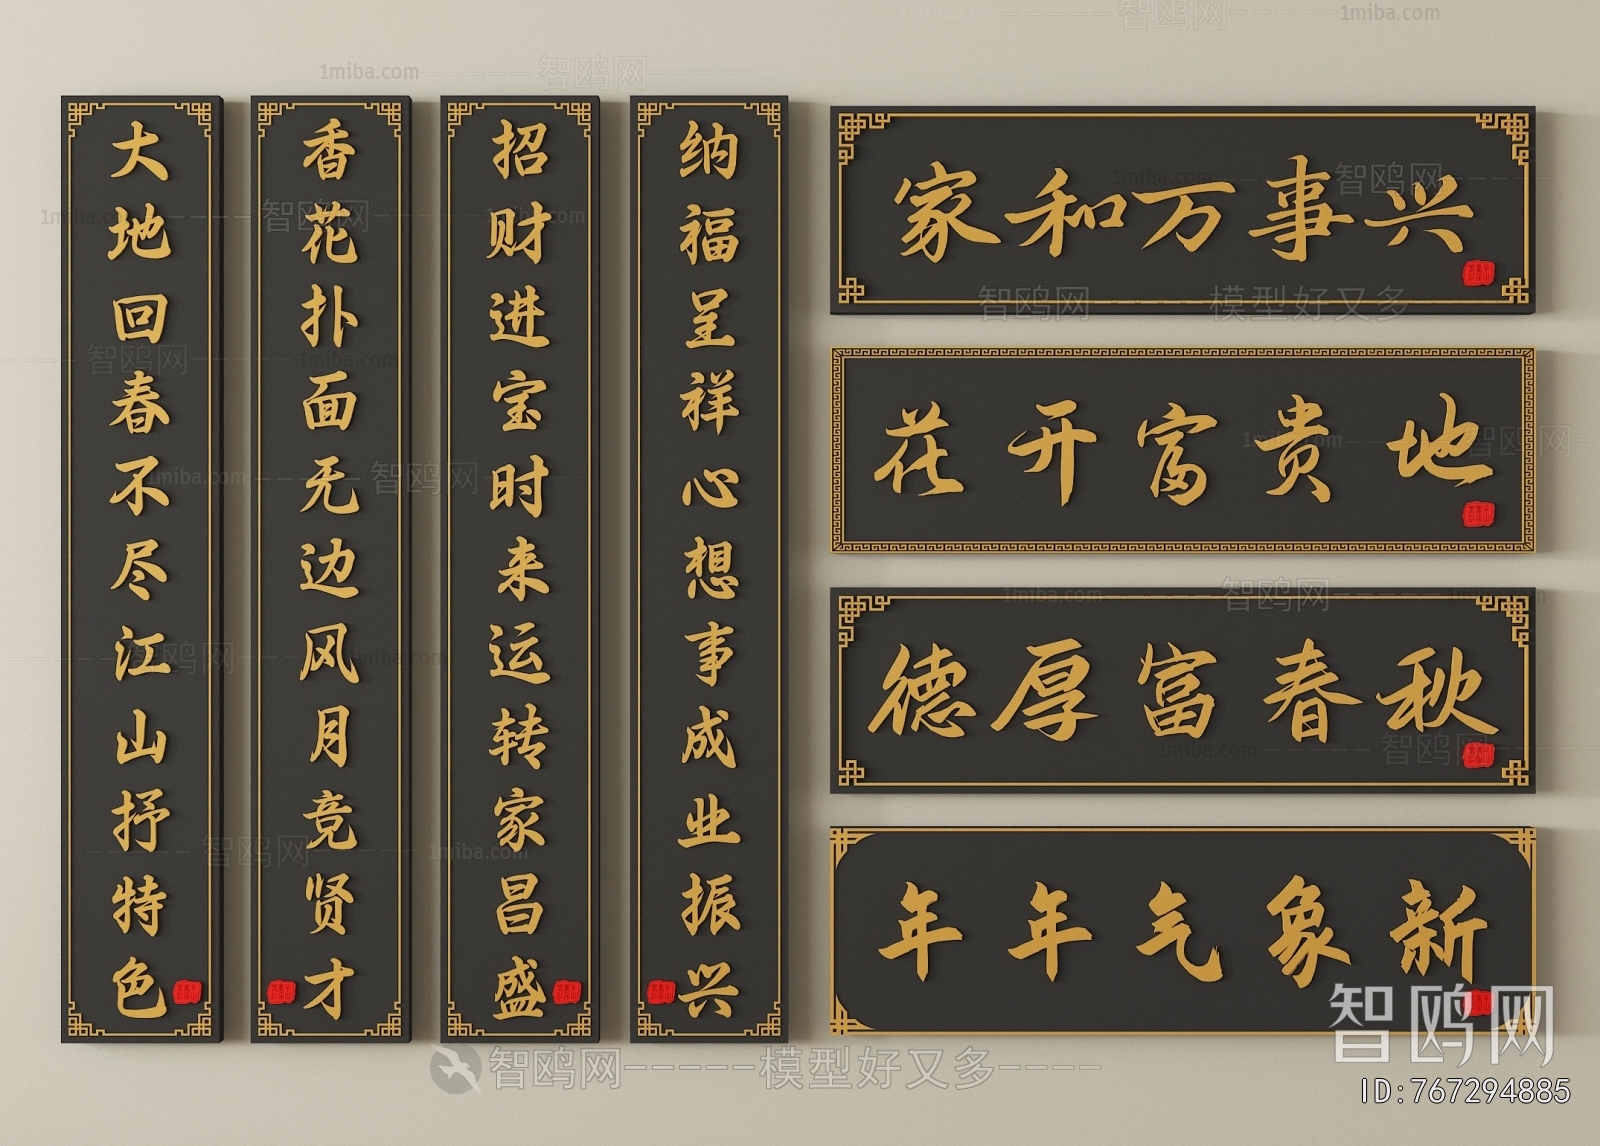 大地回春不尽江山抒特色
香花扑面无边风月竞贤才
招财进宝时来运转家昌盛
纳福呈祥心想事成业振兴
家和万事兴
花开富贵地
德厚富春秋
年年气象新
智鸥网
ID:767294885
智鸥网-----模型好又多----
1miba.com
智鸥网
模型好又多